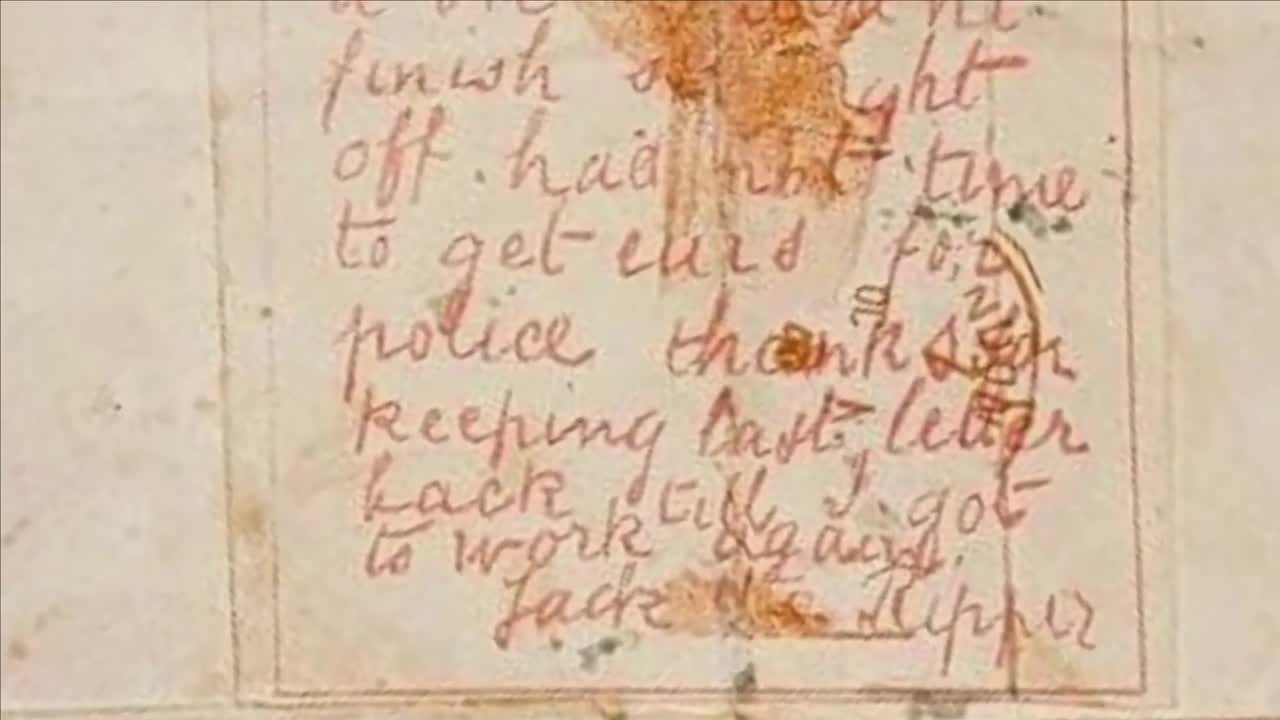 finish
off had not time
to get ears for
police thanks for
keeping last letter
back till I got
to work again.
Jack the Ripper